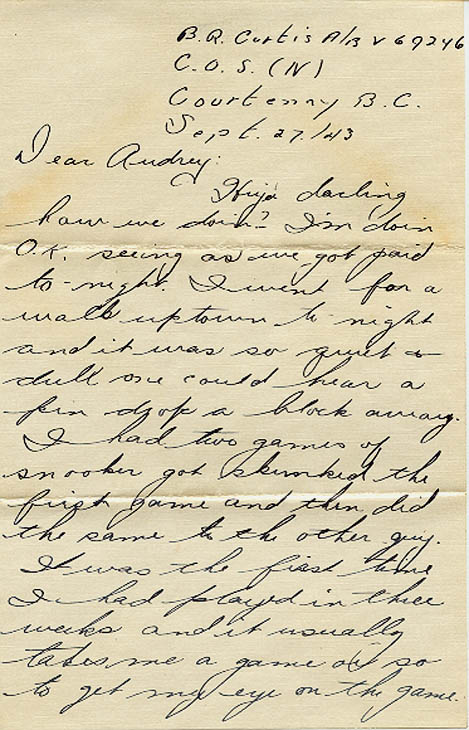 B.R. Curtis A/B V 69246
C.O.S. (N)
Courtenay B.C.
Sept. 27/43
Dear Audrey:
Hiya darling
how we doin? I'm doin
O.K. seeing as we got paid
to-night. I went for a
walk uptown to-night
and it was so quiet &
dull one could hear a
pin drop a block away.
I had two games of
snooker got skunked the
first game and then did
the same to the other guy.
It was the first time
I had played in three
weeks and it usually
takes me a game or so
to get my eye on the game.